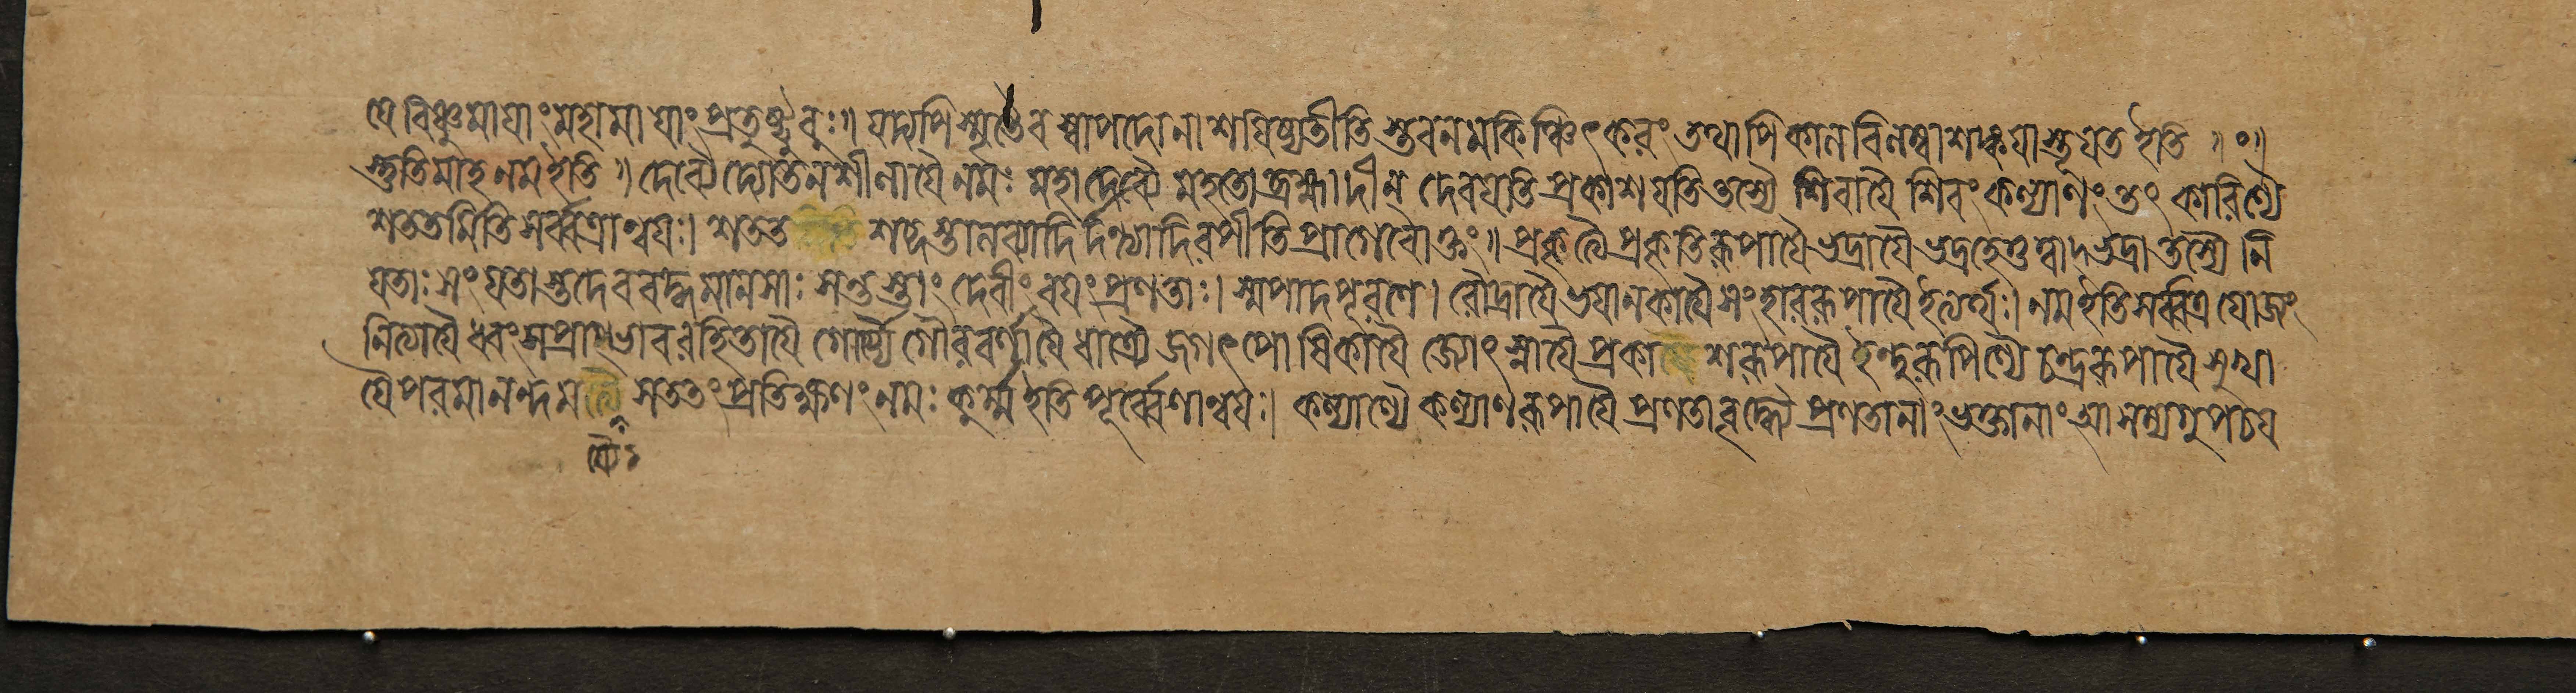 যে বিষ্ণুমায়াং মহামায়াং প্রতুষ্টুবুঃ॥ যদ্যপি স্মৃতৈব স্বাপদো নাশয়িষ্যতীতি স্তবনমকিঞ্চিৎকরং তথাপি কালবিলম্বাশঙ্কয়াস্তূয়ত ইতি॥০॥
স্তুতিমাহ নম ইতি॥ দেব্যৈ দ্যোতনশীলায়ৈ নমঃ মহাদেব্যৈ মহতো ব্রহ্মাদীন্ দেবয়তি প্রকাশয়তি তস্যৈ শিবায়ৈ শিবং কল্যাণং তৎ কারিণ্যৈ
শততমিতি সর্ব্বত্রান্বয়ঃ। শতত শব্দস্তালব্যাদির্দন্ত্যাদিরপীতি প্রাগেবোক্তং॥ প্রকৃত্যৈ প্রকৃতিরূপায়ৈ ভদ্রায়ৈ ভদ্রহেতুত্বাদ্ভদ্রা তস্যৈ নি
য়তাঃ সংযতাস্তদেববদ্ধমানসাঃ সন্তস্তাং দেবীং বয়ং প্রণতাঃ। স্মপাদপূরণে। রৌদ্রায়ৈ ভয়ানকায়ৈ সংহাররূপায়ৈ ইত্যর্থঃ। নম ইতি সর্ব্বত্র যোজ্যং
নিত্যায়ৈ ধ্বংসপ্রাগভাবরহিতায়ৈ গৌর্য্যৈ গৌরবর্ণায়ৈ ধাত্র্যৈ জগৎপোষিকায়ৈ জ্যোৎস্নায়ৈ প্রকাশরূপায়ৈ ইন্দুরূপিণ্যৈ চন্দ্ররূপায়ৈ সুখা
য়ৈ পরমানন্দম সততং প্রতিক্ষণং নমঃ কুর্ম্ম ইতি পূর্ব্বেণান্বয়ঃ। কল্যাণ্যৈ কল্যাণরূপায়ৈ প্রণতাবৃদ্ধ্যৈ প্রণতানাং ভক্তানাং আ সম্যগুপচয়
য়ৈ